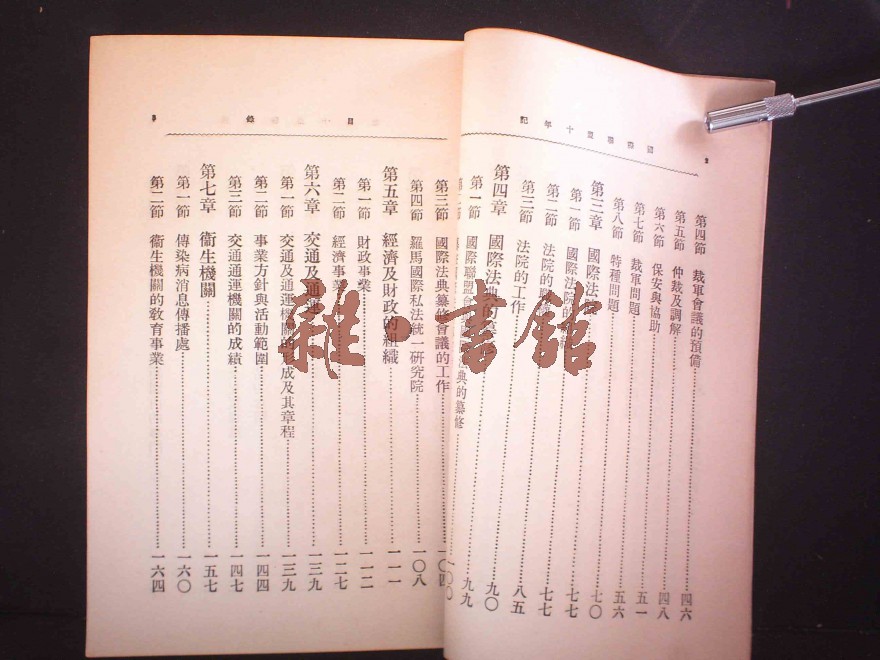 國際聯盟十年記
第四節 裁軍會議的預備 四六
第五節 仲裁及調解 四八
第六節 保安與協助 五一
第七節 裁軍問題 五六
第八節 特種問題 七〇
第三章 國際法 七七
第一節 國際法院的 七七
第二節 法院的 八五
第三節 法院的工作 九〇
第四章 國際法典的纂 九九
第一節 國際聯盟會 法典的纂修
第三節 國際法典纂修會議的工作 一〇四
第四節 羅馬國際私法統一研究院 一〇八
第五章 經濟及財政的組織 一一一
第一節 財政事業 一一二
第二節 經濟事業 一二七
第六章 交通及通運 一三九
第一節 交通及通運機關的形成及其章程 一三九
第二節 事業方針與活動範圍 一四四
第三節 交通通運機關的成績 一四七
第七章 衞生機關 一五七
第一節 傳染病消息傳播處 一六〇
第二節 衞生機關的敎育事業 一六四
雜·書館